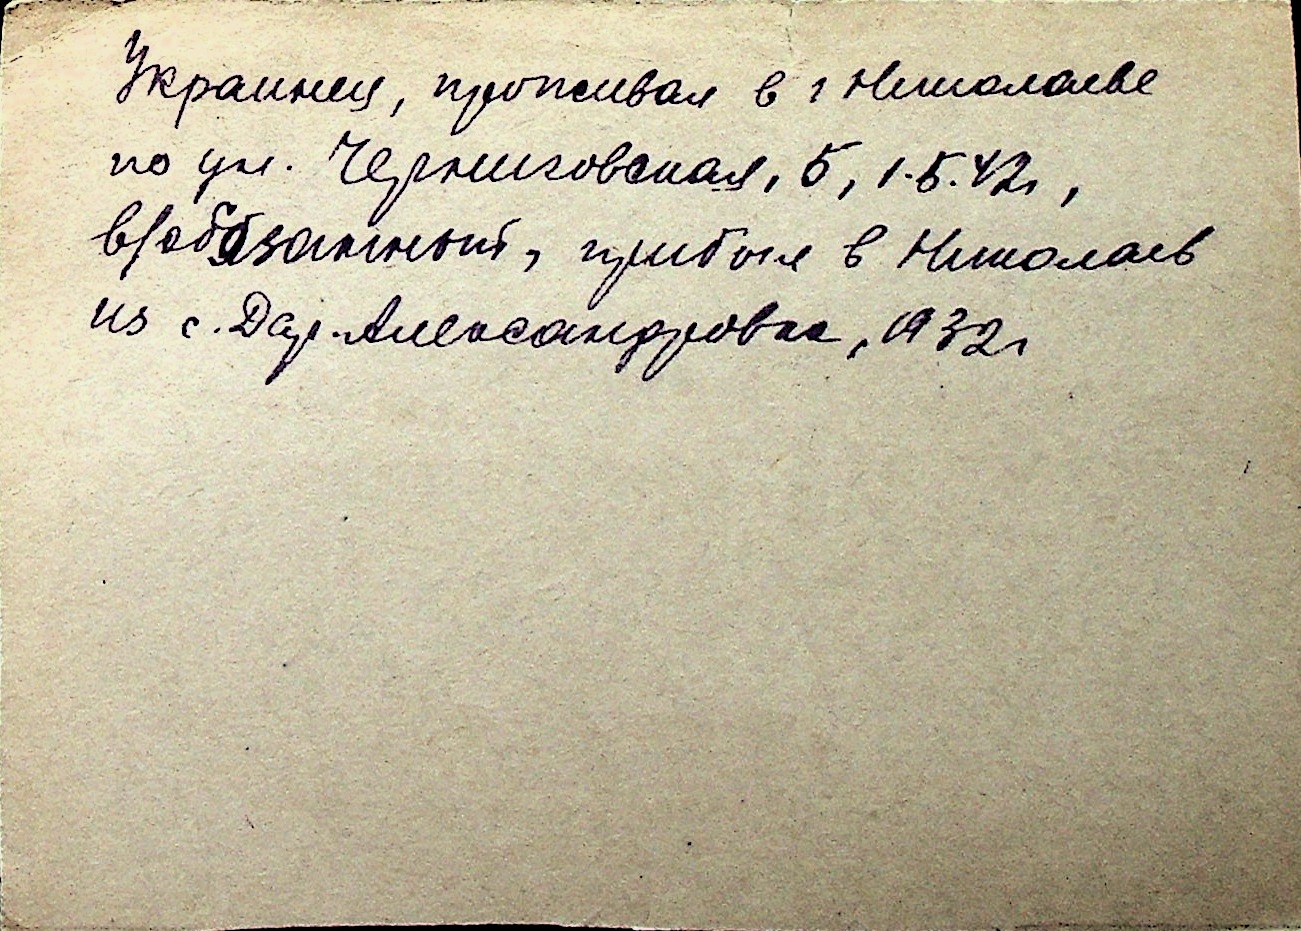 Украинец, проживал в г Николаеве
по ул. Черниговская, 5, 1.5.42г,
в/обязанный, прибыл в Николаев
из с. Дар.-Александровка, 1932г